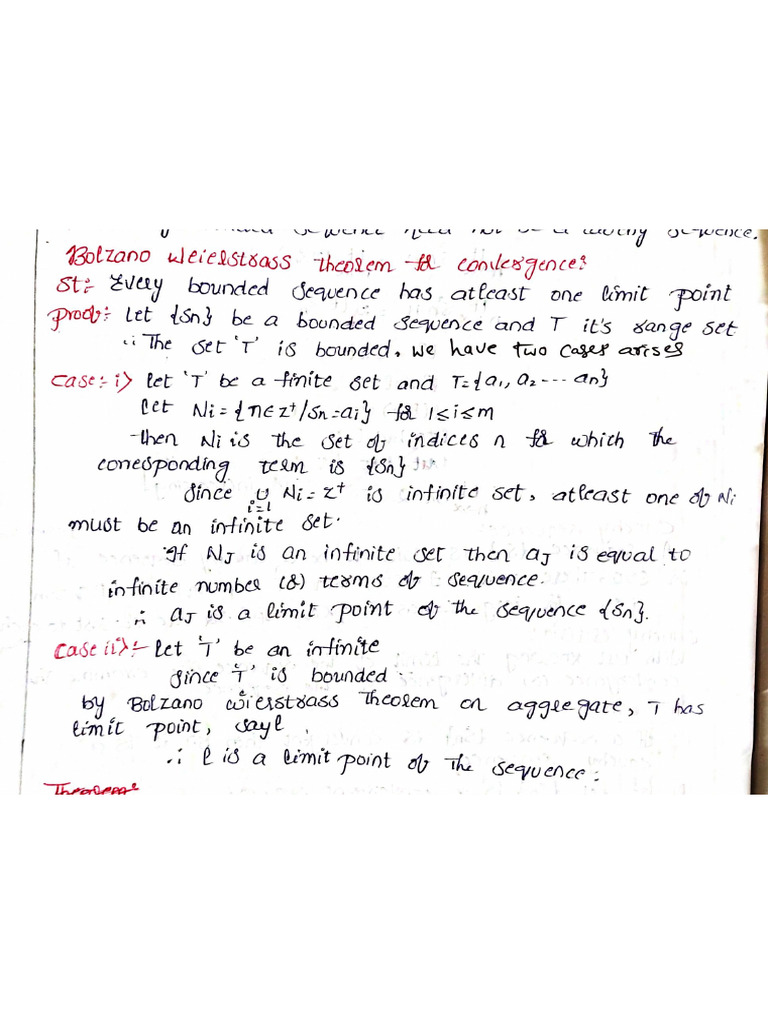 sequence need not be a cauchy sequence.
Bolzano Weierstrass theorem for convergence:
St:- Every bounded sequence has atleast one limit point
Proof:- Let {Sn} be a bounded sequence and T it's range set
∴ The set 'T' is bounded, we have two cases arises
Case:- i) let 'T' be a finite set and T={a1, a2 --- an}
Let Ni = {n∈z+/Sn=ai} for 1≤i≤m
then Ni is the set of indices n for which the
corresponding term is {Sn}
Since ∪ Ni = z+ is infinite set, atleast one of Ni
i=1
must be an infinite set.
If NJ is an infinite set then aJ is equal to
infinite number (8) terms of sequence.
∴ aJ is a limit point of the sequence {Sn}.
Case ii):- Let 'T' be an infinite.
Since 'T' is bounded.
by Bolzano wierstrass Theorem on aggregate, T has
limit point, say l.
∴ l is a limit point of the sequence.
Theorem: